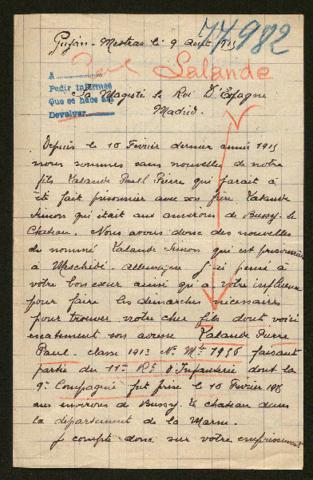 74982
Gujan-Mestras le 9 aout 1915
Paul Lalande
A
Pedir informes
Que se hace así
Devolver
Sa Majesté le Roi D'Espagne
Madrid.
Depuis le 10 Février dernier année 1915
nous sommes sans nouvelle de notre
fils Lalande Paul Pierre qui parait à
été fait prisonnier avec son frère Lalande
Simon qui était aux environs de Bussy le
Chateau. Nous avons donc des nouvelles
du nommé Lalande Simon qui est prisonnier
à Meschédé allemagne j'ai pensé à
votre bon cœur ainsi qu'a votre influence
pour faire les demarches nécessaires
pour trouver notre cher fils dont voici
exactement son adresse Lalande Pierre
Paul. classe 1913 No Mle 1956 faisant
partie du Rt d'Infanterie dont la
9e Compagnie fut prise le 10 Février 1915
aux environs de Bussy le chateau dans
la département de la Marne.
Je compte donc sur votre empressement